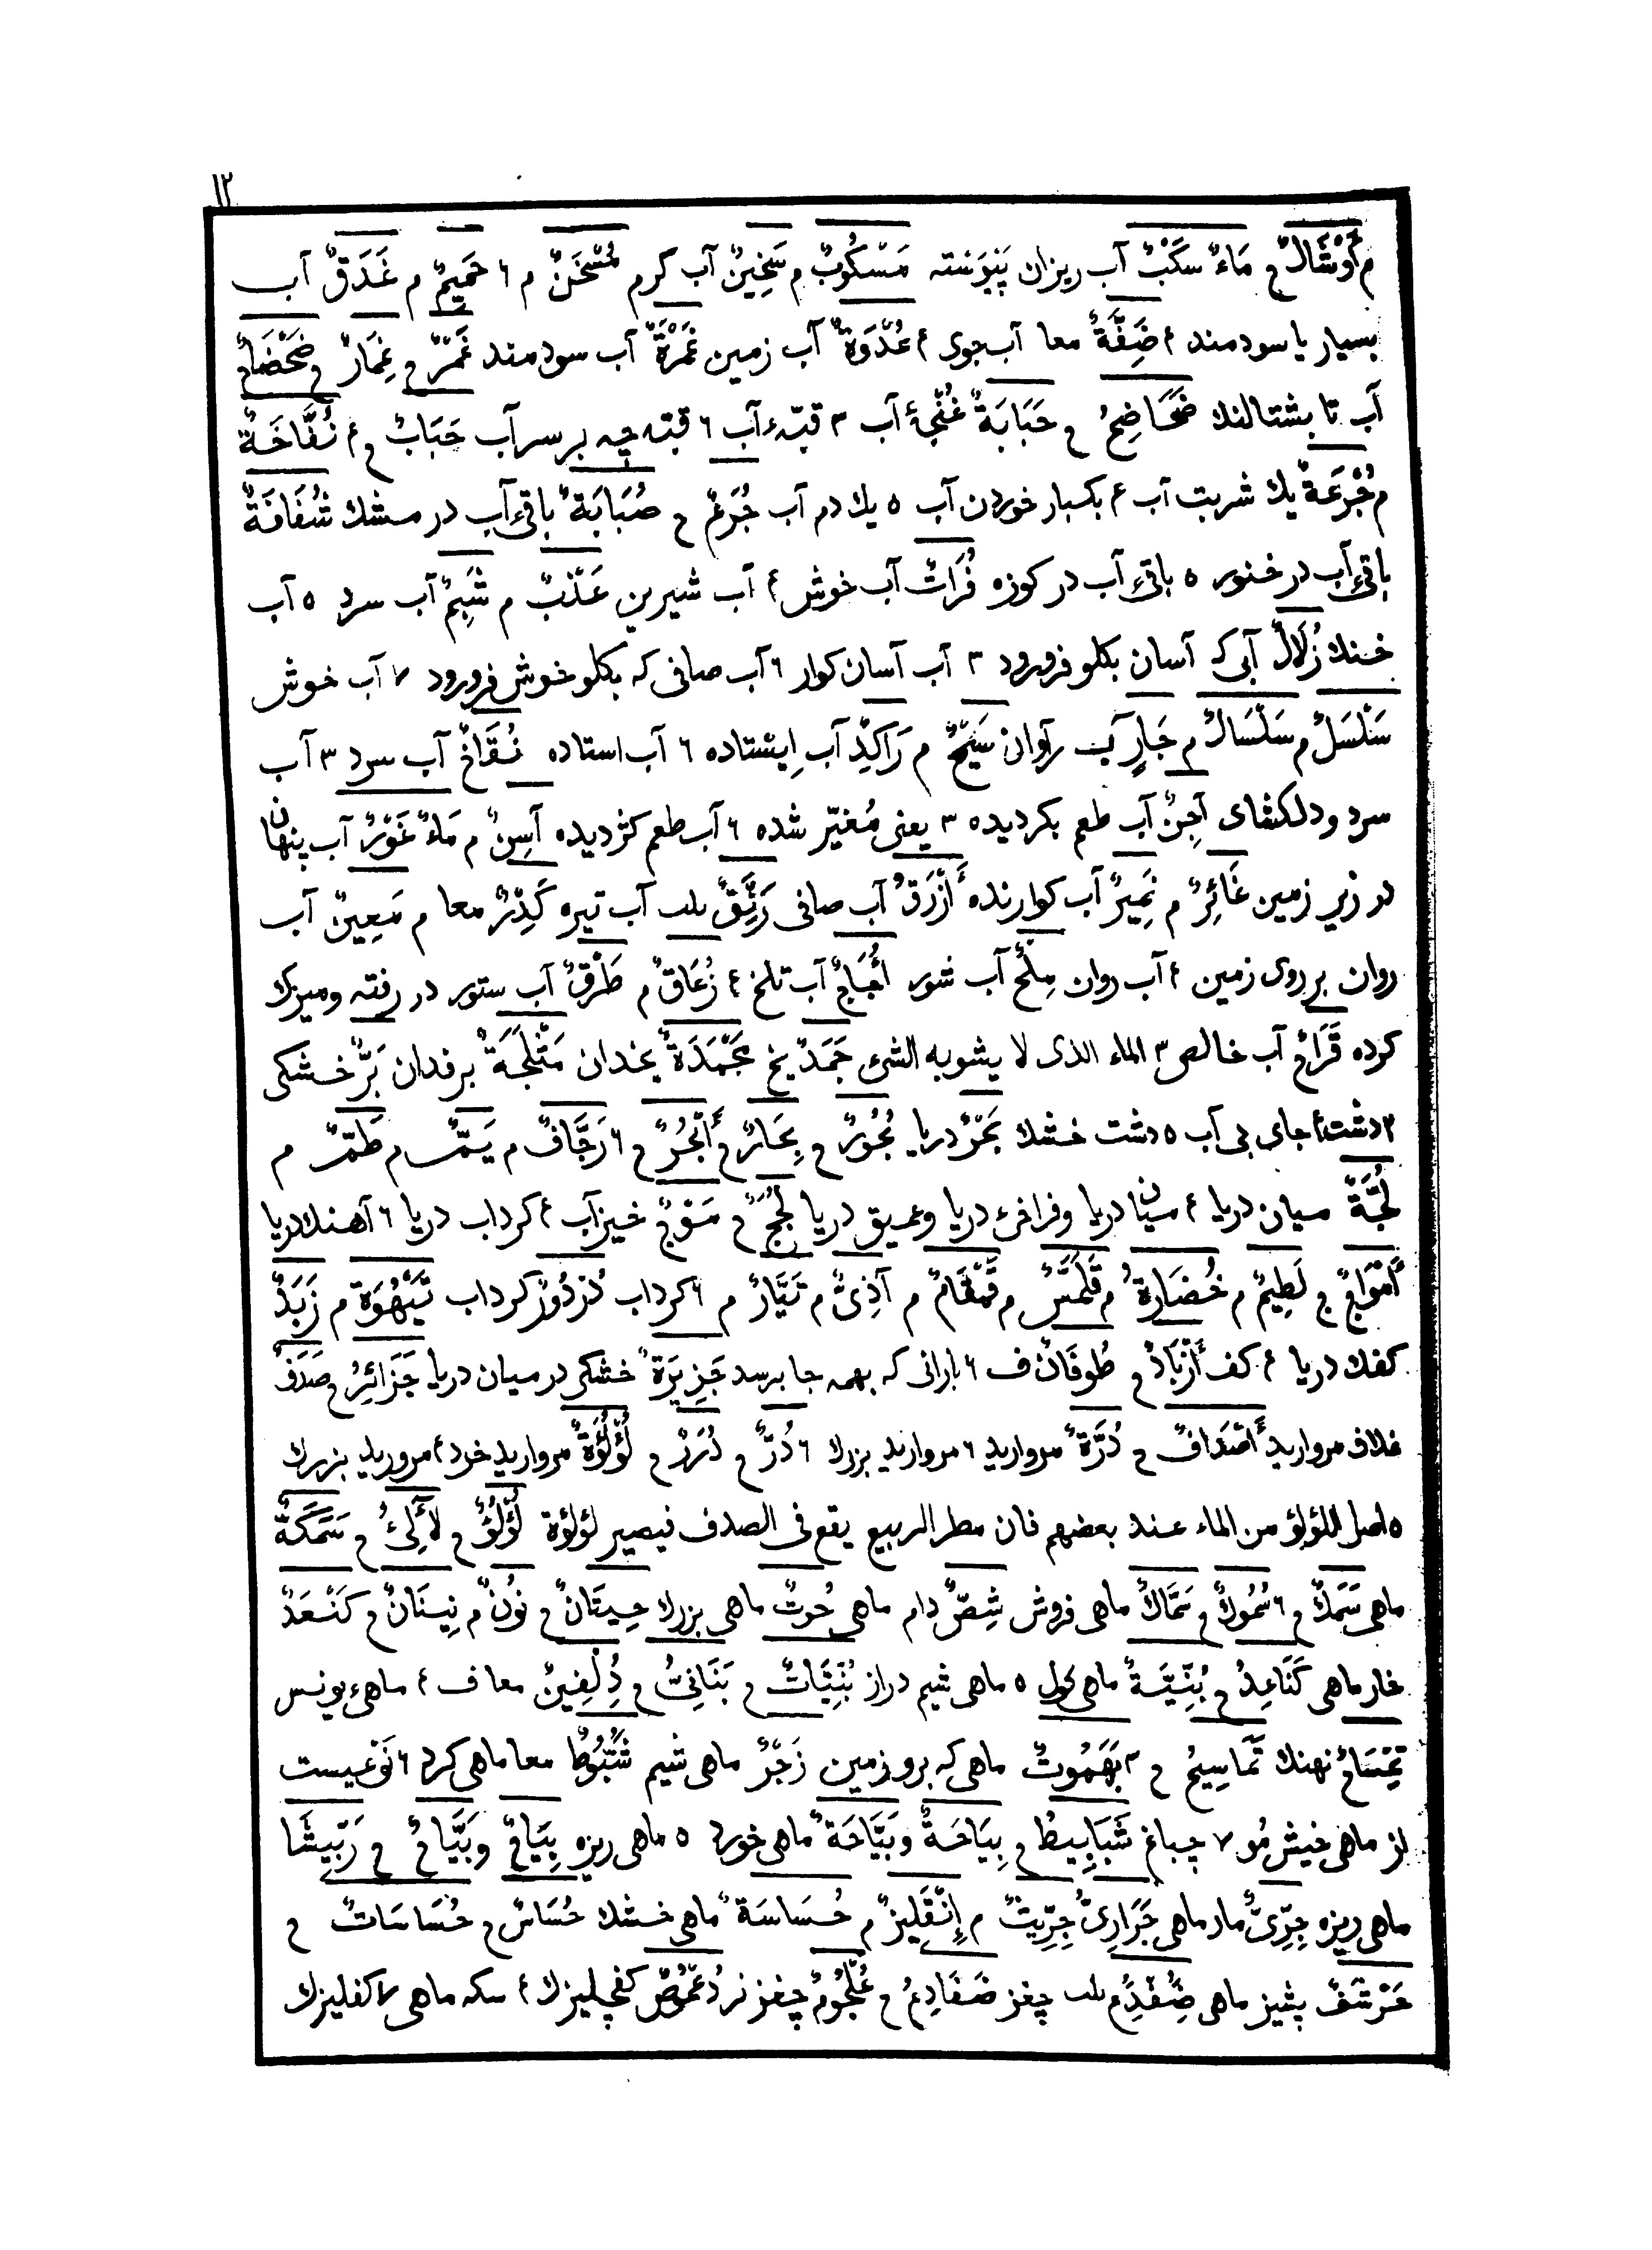 ١٢
م أَوْشَالٌ م مَاءٌ سَكْبٌ آب ريزان پيوسته مَسْكُوبٌ م سَخِينٌ آب كرم مُسْخَنٌ م ٦ حَمِيمٌ م غَدَقٌ آب
بسيار يا سودمند ٤ ضَفَّةٌ معا آب جوى ٤ عُدْوَةٌ آب زمين غَمْرَةٌ آب سودمند غَمْرٌ م غِمَارٌ م ضَحْضَاحٌ
آب تا بشتالنك ضَحَاضِحُ م حَبَابَةٌ غُنْچۀ آب ٣ قبّهء آب ٦ قبّه چه بر سر آب حَبَابٌ م ٤ نُفَّاخَةٌ
م جُرْعَةٌ يك شربت آب ٤ بكبار خوردن آب ٥ يك دم آب جُرَعٌ م صُبَابَةٌ باقىء آب در مشك شُفَافَةٌ
باقىء آب در خنور ٥ باقىء آب در كوزه فُرَاتٌ آب خوش ٤ آب شيرين عَذْبٌ م شَبِمٌ آب سرد ٥ آب
خنك زُلَالٌ آبى كه آسان بكلو فرورود ٣ آب آسان كوار ٦ آب صافى كه بكلو خوش فرورود ٧ آب خوش
سَلْسَلٌ م سَلْسَالٌ م جَارٍ آب روان سَيْحٌ م رَاكِدٌ آب ايستاده ٦ آب استاده نُقَاخٌ آب سرد ٣ آب
سرد ودلكشاى آجِنٌ آب طعم بكرديده ٣ يعنى مُغيّر شده ٦ آب طعم كژديده آسِنٌ م مَاءٌ غَوْرٌ آب پنهان
در زير زمين غَائِرٌ م نَمِيرٌ آب كوارنده أَزْرَقُ آب صافى رَنْقٌ آب تيره كَدِرٌ معا م مَعِينٌ آب
روان بر روى زمين ٤ آب روان مِلْحٌ آب شور أُجَاجٌ آب تلخ ٤ زُعَاقٌ م طَرْقٌ آب ستور در رفته وميزك
كرده قَرَاحٌ آب خالص ٣ الماء الذى لا يشوبه الشىء جَمَدٌ يخ مَجْمَدَةٌ يخدان مَثْلَجَةٌ برفدان بَرٌّ خشكى
٣ دشت ٤ جاى بى آب ٥ دشت خشك بَحْرٌ دريا بُحُورٌ م بِحَارٌ م أَبْحُرٌ م ٦ رَجَّافٌ م يَمٌّ م طَمٌّ م
لُجَّةٌ ميان دريا ٤ ميان دريا وفراخىء دريا وعميق دريا لُجَجٌ م مَوْجٌ خيز آب ٤ كرداب دريا ٦ آهنك دريا
أَمْوَاجٌ م لَطِيمٌ م خُضَارَةُ م قَلَمَّسٌ م قَمْقَامٌ م آذِىٌّ م تَيَّارٌ م ٦ كرداب دُرْدُورٌ كرداب تَيْهُوَةٌ م زَبَدٌ
كفك دريا ٤ كف أَزْبَادٌ م طُوفَانٌ ف ٦ بارانى كه بهمه جا برسد جَزِيرَةٌ خشكى در ميان دريا جَزَائِرُ م صَدَفٌ
غلاف مرواريد أَصْدَافٌ م دُرَّةٌ مرواريد ٦ مرواريد بزرك ٦ دُرٌّ م دُرَرٌ م لُؤْلُؤَةٌ مرواريد خرد ٤ مروريد بزرك
٥ اصل اللؤلؤ من الماء عند بعضهم فان مطر الربيع يقع فى الصدف فيصير لؤلؤة لُؤْلُؤٌ م لَآلِئُ م سَمَكَةٌ
ماهى سَمَكٌ م ٦ سُمُوكٌ م سَمَّاكٌ ماهى فروش شِصٌّ دام ماهى حُوتٌ ماهى بزرك حِيتَانٌ م نُونٌ م نِينَانٌ م كَنْعَدٌ
خار ماهى كَنَاعِدُ م بُنِّيَّةٌ ماهى كول ٥ ماهى شيم دراز بُنِّيَّاتٌ م بَنَانِىُّ م دُلْفِينٌ معا ف ٤ ماهىء يونس
تِمْسَاحٌ نهنك تَمَاسِيحُ م ٣ بَهَمُوتُ ماهى كه برو زمين زَجْرٌ ماهى شيم شَبُّوطٌ معا ماهى كرد ٦ نَوْعيست
از ماهى خيش مُو ٧ چباغ شَبَابِيطُ م بِيَاحَةٌ وبَيَّاحَةٌ ماهى خورد ٥ ماهى ريزه بِيَاحٌ وبَيَّاحٌ م رَبِيثَا
ماهى ريزه جِرِّىٌّ مار ماهى جَرَارِىُّ جِرِّيثٌ م إِنْقَلِيزٌ م حُسَاسَةٌ ماهى خشك حُسَاسٌ م حُسَاسَاتٌ م
حَرْشَفٌ پشيز ماهى ضِفْدِعٌ چغز ضَفَادِعُ م عُلْجُومٌ چغز نر دُعْمُوصٌ كفچليزك ٤ سكه ماهى ٧ كفليزك